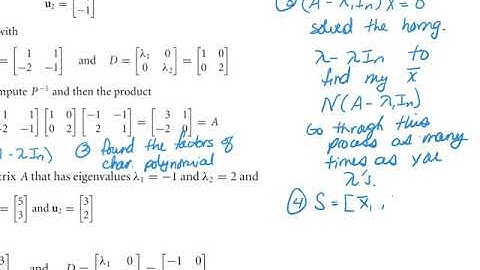 u₂ = [ -1 ]
with
= [ 1 1 -2 -1 ] and D = [ λ₁ 0 0 λ₂ ] = [ 1 0 0 2 ]
mpute P⁻¹ and then the product
1 1 -2 -1 ] [ 1 0 0 2 ] [ -1 -1 2 1 ] = [ 3 1 -2 0 ] = A
A - λIn) ③ found the factors of
char. polynomial
trix A that has eigenvalues λ₁ = -1 and λ₂ = 2 and
= [ 5 3 ] and u₂ = [ 3 2 ]
3 ] and D = [ λ₁ 0 ] = [ -1 0 ]
(A - λ,In) x̄ = 0
solved the homg.
λ - λIn to
find my x̄
N(A - λ,In)
Go through this
process as many
times as you
λ's.
④ S = [ x̄₁ ,